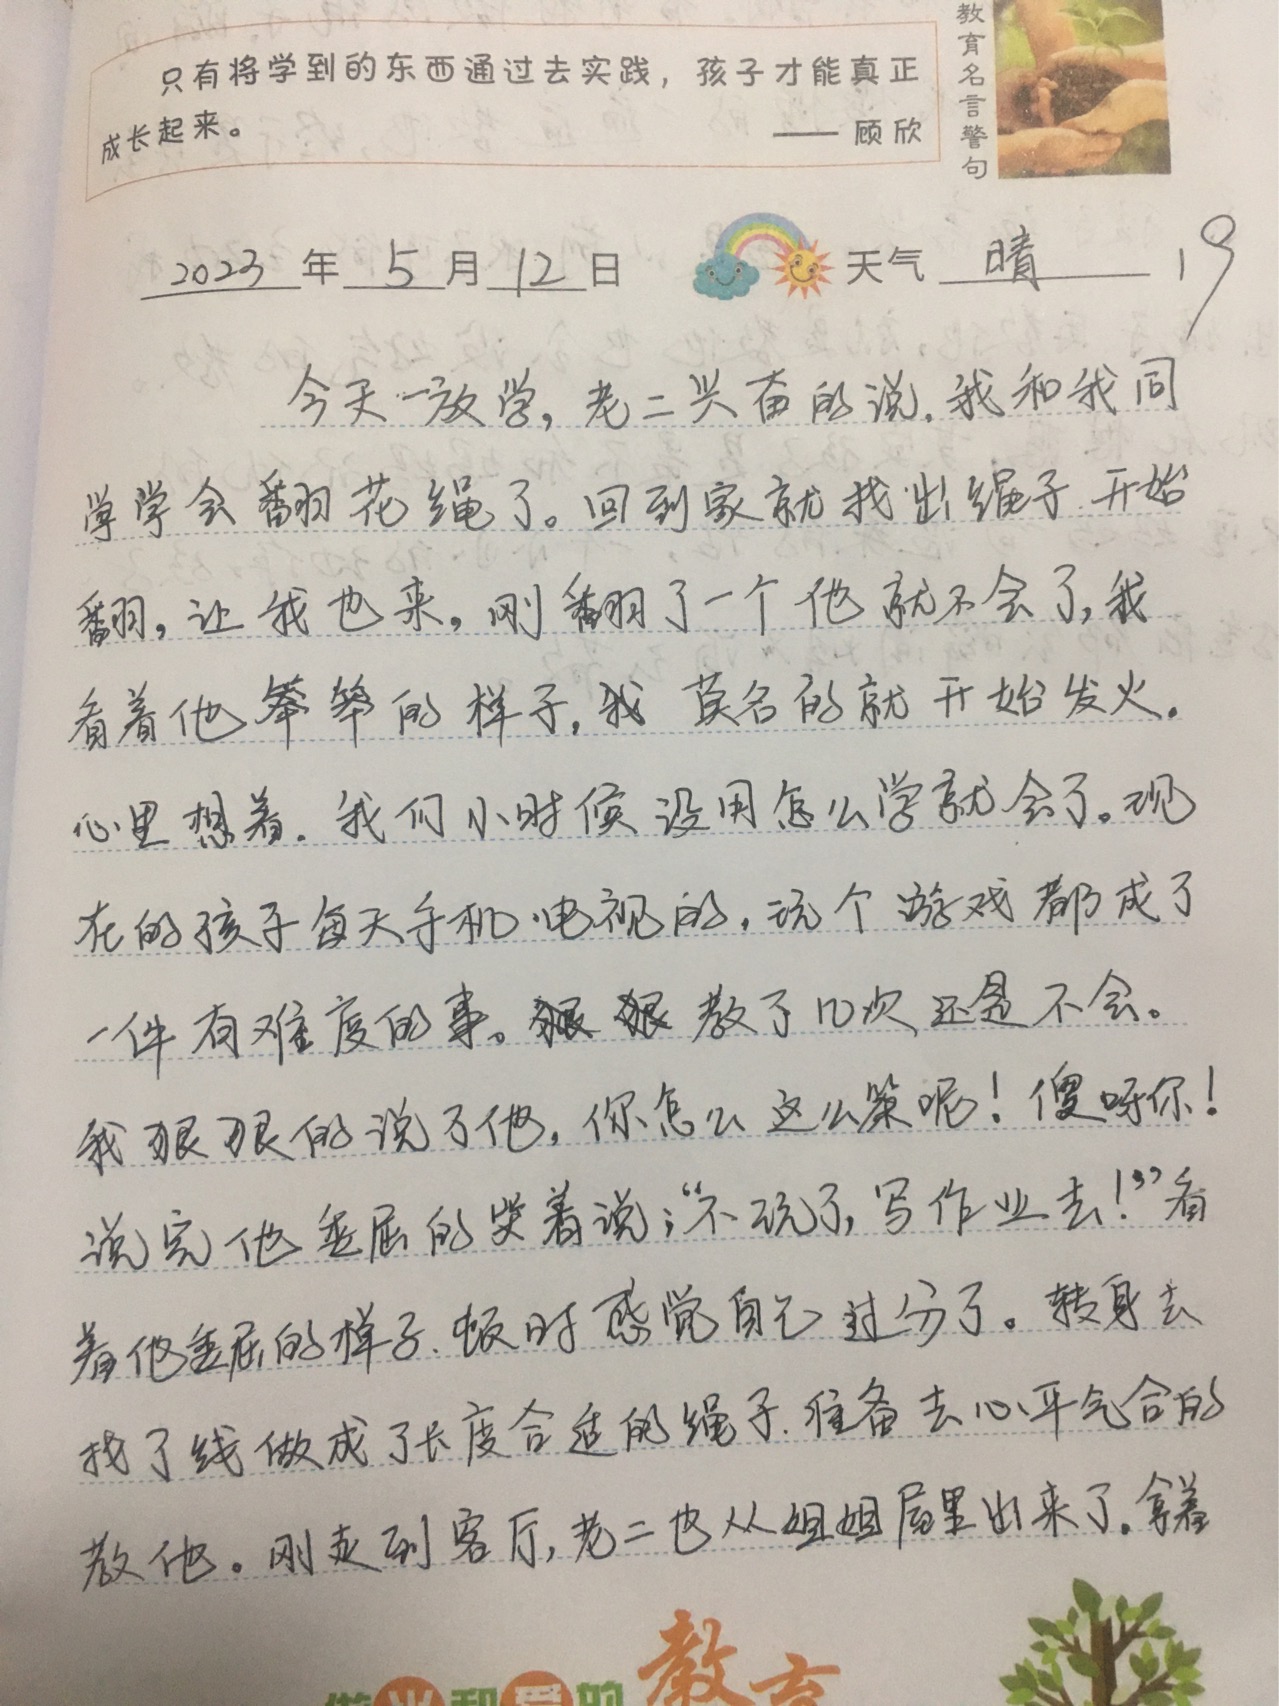 教育名言警句
只有将学到的东西通过去实践，孩子才能真正
成长起来。
—— 顾欣
2023年5月12日 天气 晴 19
今天一放学，老二兴奋的说，我和我同
学学会翻花绳了。回到家就找出绳子开始
翻，让我也来。刚翻了一个他就不会了，我
看着他笨笨的样子，我莫名的就开始发火。
心里想着．我们小时候没用怎么学就会了。现
在的孩子每天手机电视的，玩个游戏都成了
一件有难度的事。狠狠教了几次还是不会。
我狠狠的说了他，你怎么这么笨呢！傻呀你！
说完他委屈的哭着说；“不玩了，写作业去！”看
着他委屈的样子．顿时感觉自己过分了。转身去
找了线做成了长度合适的绳子．准备去心平气合的
教他。刚走到客厅，老二也从姐姐屋里出来了。拿着
做光和爱的教育